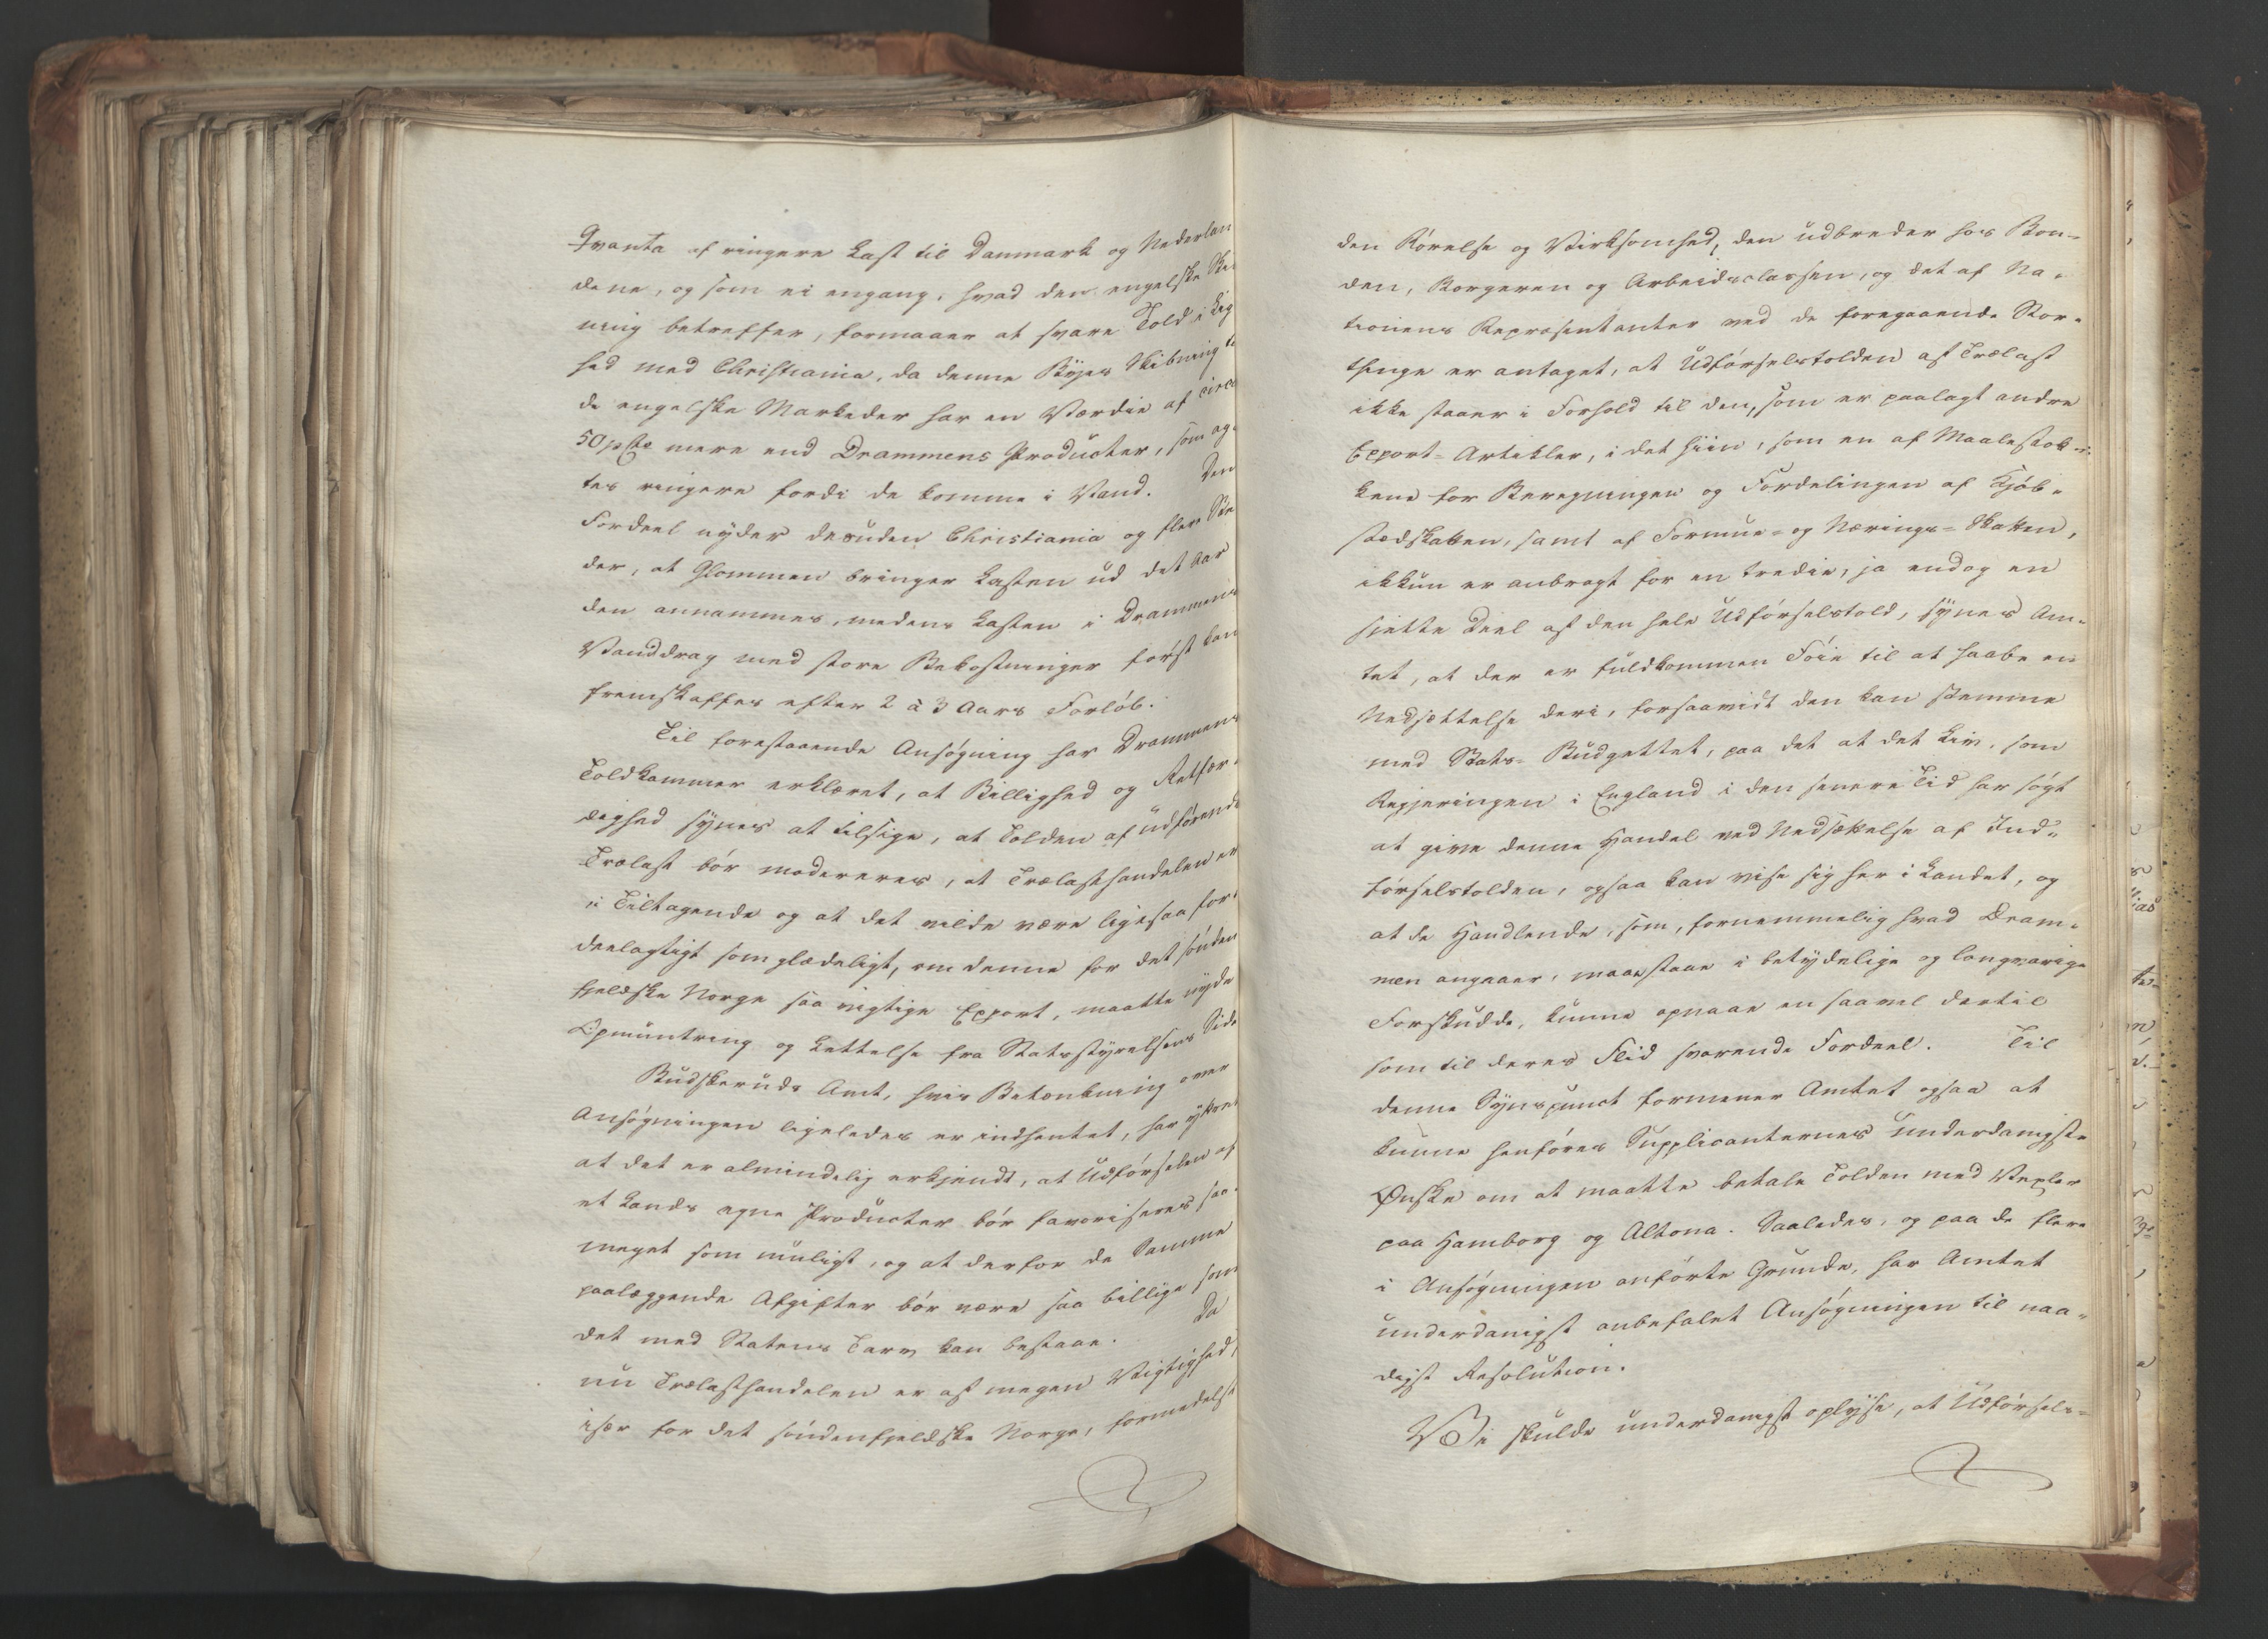 Qvanta af ringere Last til Danmark og Nederlan
dene, og som ei engang, hvad den engelske Skib
ning betreffer, formaaer at svare Told i Lig
hed med Christiania, da denne Byes Skibning til
de engelske Markeder har en Værdie af circa
50 pCt mere end Drammens Producter, som ag-
tes ringere fordi de komme i Vand. Den
Fordeel nyder desuden Christiania og flere Stæ
der, at Glommen bringer Lasten ud det Aar
den annammes, medens Lasten i Drammens
Vanddrag med store Bekostninger først kan
fremskaffes efter 2 à 3 Aars Forløb.
Til forestaaende Ansøgning har Drammens
Toldkammer erklæret, at Billighed og Retfær-
dighed synes at tilsige, at Tolden af udførende
Trælast bør modereres, at Trælasthandelen er
i Tiltagende og at det vilde være ligesaa for-
deelagtigt som glædeligt, om denne for det sønden
fjeldske Norge saa vigtige Export, maatte nyde
Opmuntring og Lettelse fra Statsstyrelsens Side
Budskeruds Amt, hvis Betænkning over
Ansøgningen ligeledes er indhentet, har yttret
at det er almindelig erkjendt, at Udførselen af
et Lands egne Producter bør favoriseres saa-
meget som muligt, og at derfor de Samme
paalæggende Afgifter bør være saa billige som
det med Statens Tarv kan bestaae. Da
nu Trælasthandelen er af megen Vigtighed,
især for det søndenfjeldske Norge, formedelst
den Rørelse og Virksomhed, den udbreder hos Bon-
den, Borgeren og Arbeidsclassen, og det af Na-
tionens Repræsentanter ved de foregaaende Stor-
thinge er antaget, at Udførselstolden af Trælast
ikke staaer i Forhold til den, som er paalagt andre
Export-Artikler, i det hiin, som en af Maalestok-
kene for Beregningen og Fordelingen af Kjøb-
stædskatten, samt af Formue- og Nærings-Skatten,
ikkun er anbragt for en tredie, ja endog en
sjette Deel af den hele Udførselstold, synes Am-
tet, at der er fuldkommen Føie til at haabe en
Nedsættelse deri, forsaavidt den kan stemme
med Stats-Budgettet, paa det at det Liv, som
Regjeringen i England i den senere Tid har søgt
at give denne Handel ved Nedsættelse af Ind-
førselstolden, ogsaa kan vise sig her i Landet, og
at de Handlende, som, fornemmelig hvad Dram-
men angaaer, maae staae i betydelige og langvarige
Forskudde, kunne opnaae en saavel dertil
som til deres Flid svarende Fordeel. Til
denne Synspunct formener Amtet ogsaa at
kunne henføres Supplicanternes underdanigste
Ønske om at maatte betale Tolden med Vexler
paa Hamborg og Altona. Saaledes, og paa de flere
i Ansøgningen anførte Grunde, har Amtet
underdanigst anbefalet Ansøgningen til naa-
digst Resolution.
Vi skulde underdanigst oplyse, at Udførsels-